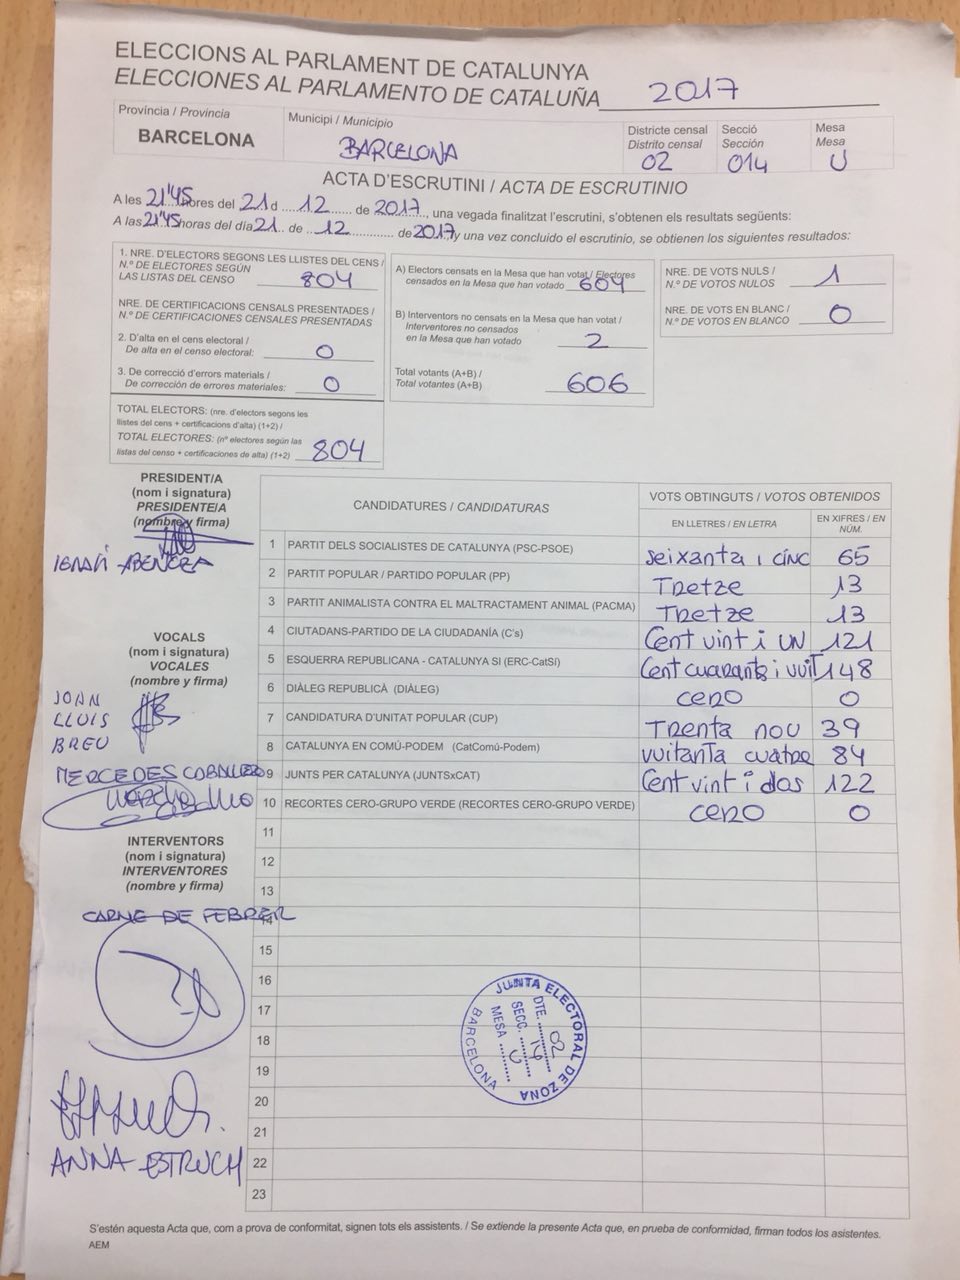 ELECCIONS AL PARLAMENT DE CATALUNYA
ELECCIONES AL PARLAMENTO DE CATALUÑA 2017
Província / Provincia
BARCELONA
Municipi / Municipio
BARCELONA
Districte censal
Distrito censal
02
Secció
Sección
014
Mesa
Mesa
U
ACTA D'ESCRUTINI / ACTA DE ESCRUTINIO
A les 21'45 hores del 21 d 12 de 2017, una vegada finalitzat l'escrutini, s'obtenen els resultats següents:
A las 21'45 horas del día 21 de 12 de 2017 y una vez concluido el escrutinio, se obtienen los siguientes resultados:
1. NRE. D'ELECTORS SEGONS LES LLISTES DEL CENS /
N.º DE ELECTORES SEGÚN
LAS LISTAS DEL CENSO 804
NRE. DE CERTIFICACIONS CENSALS PRESENTADES /
N.º DE CERTIFICACIONES CENSALES PRESENTADAS
2. D'alta en el cens electoral /
De alta en el censo electoral: 0
3. De correcció d'errors materials /
De corrección de errores materiales: 0
TOTAL ELECTORS: (nre. d'electors segons les
llistes del cens + certificacions d'alta) (1+2) /
TOTAL ELECTORES: (nº electores según las
listas del censo + certificaciones de alta) (1+2) 804
A) Electors censats en la Mesa que han votat / Electores
censados en la Mesa que han votado 604
B) Interventors no censats en la Mesa que han votat /
Interventores no censados
en la Mesa que han votado 2
Total votants (A+B) /
Total votantes (A+B) 606
NRE. DE VOTS NULS /
N.º DE VOTOS NULOS 1
NRE. DE VOTS EN BLANC /
N.º DE VOTOS EN BLANCO 0
PRESIDENT/A
(nom i signatura)
PRESIDENTE/A
(nombre y firma)
VOCALS
(nom i signatura)
VOCALES
(nombre y firma)
JOAN
LLUIS
BREU
MERCEDES
INTERVENTORS
(nom i signatura)
INTERVENTORES
(nombre y firma)
CARME DE FEBRER
ANNA ESTRUCH
CANDIDATURES / CANDIDATURAS
VOTS OBTINGUTS / VOTOS OBTENIDOS
EN LLETRES / EN LETRA
EN XIFRES / EN NÚM.
1 PARTIT DELS SOCIALISTES DE CATALUNYA (PSC-PSOE) seixanta i cinc 65
2 PARTIT POPULAR / PARTIDO POPULAR (PP) Tretze 13
3 PARTIT ANIMALISTA CONTRA EL MALTRACTAMENT ANIMAL (PACMA) Tretze 13
4 CIUTADANS-PARTIDO DE LA CIUDADANÍA (C's) Cent vint i UN 121
5 ESQUERRA REPUBLICANA - CATALUNYA SÍ (ERC-CatSí) Cent cuaranta i vuit 148
6 DIÀLEG REPUBLICÀ (DIÀLEG) cero 0
7 CANDIDATURA D'UNITAT POPULAR (CUP) Trenta nou 39
8 CATALUNYA EN COMÚ-PODEM (CatComú-Podem) vuitanta cuatre 84
9 JUNTS PER CATALUNYA (JUNTSxCAT) Cent vint i dos 122
10 RECORTES CERO-GRUPO VERDE (RECORTES CERO-GRUPO VERDE) cero 0
11
12
13
14
15
16
17
18
19
20
21
22
23
JUNTA ELECTORAL DE ZONA
DTE. 02
SECC. 14
MESA U
BARCELONA
S'estén aquesta Acta que, com a prova de conformitat, signen tots els assistents. / Se extiende la presente Acta que, en prueba de conformidad, firman todos los asistentes.
AEM